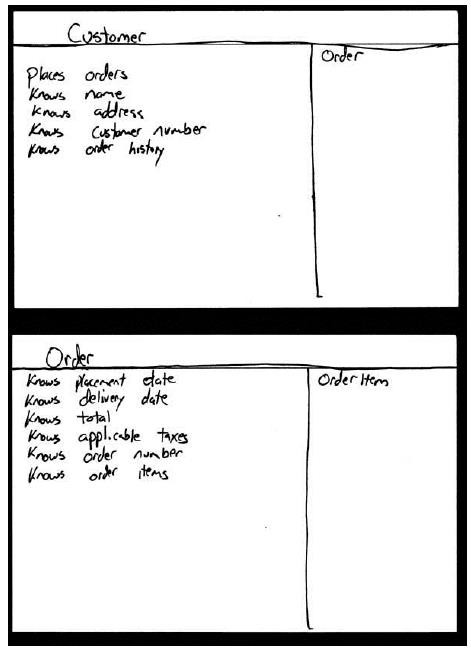 Customer
Order
Places orders
Knows name
Knows address
Knows customer number
Knows order history
Order
Order Item
Knows placement date
Knows delivery date
Knows total
Knows applicable taxes
Knows order number
Knows order items